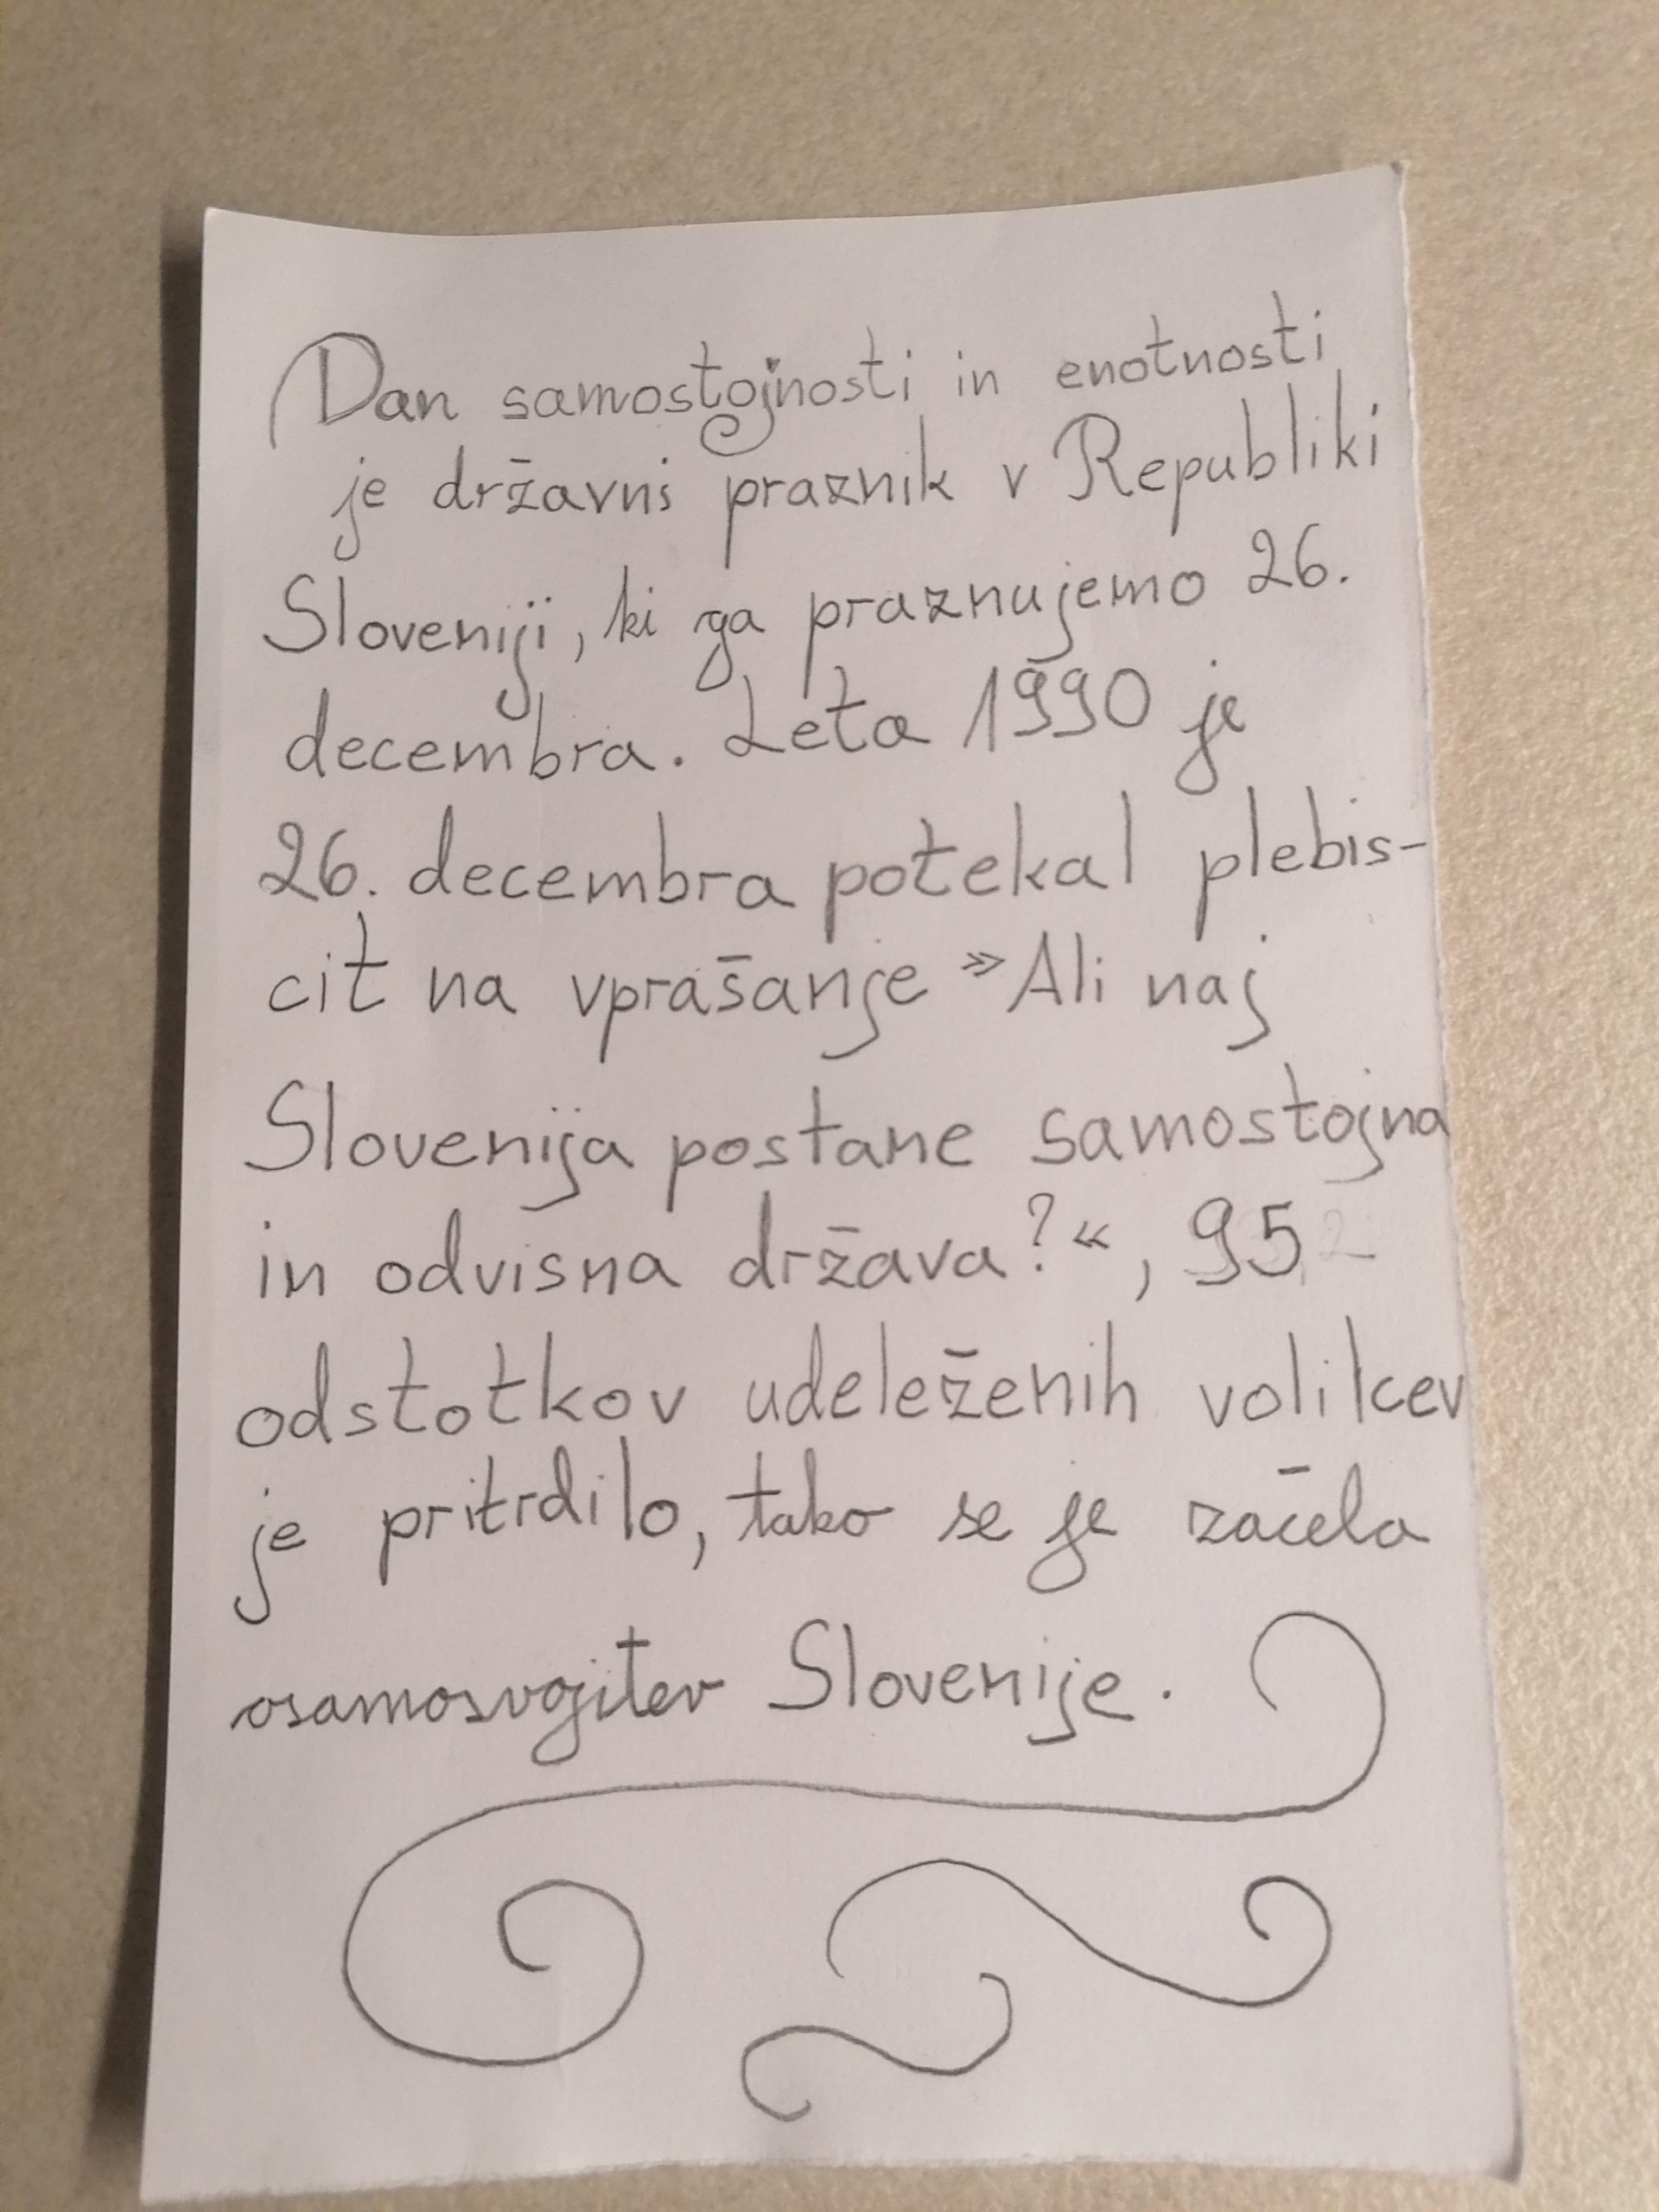 Dan samostojnosti in enotnosti
je državni praznik v Republiki
Sloveniji, ki ga praznujemo 26.
decembra. Leta 1990 je
26. decembra potekal plebis-
cit na vprašanje »Ali naj
Slovenija postane samostojna
in odvisna država?«, 95
odstotkov udeleženih volilcev
je pritrdilo, tako se je začela
osamosvojitev Slovenije.